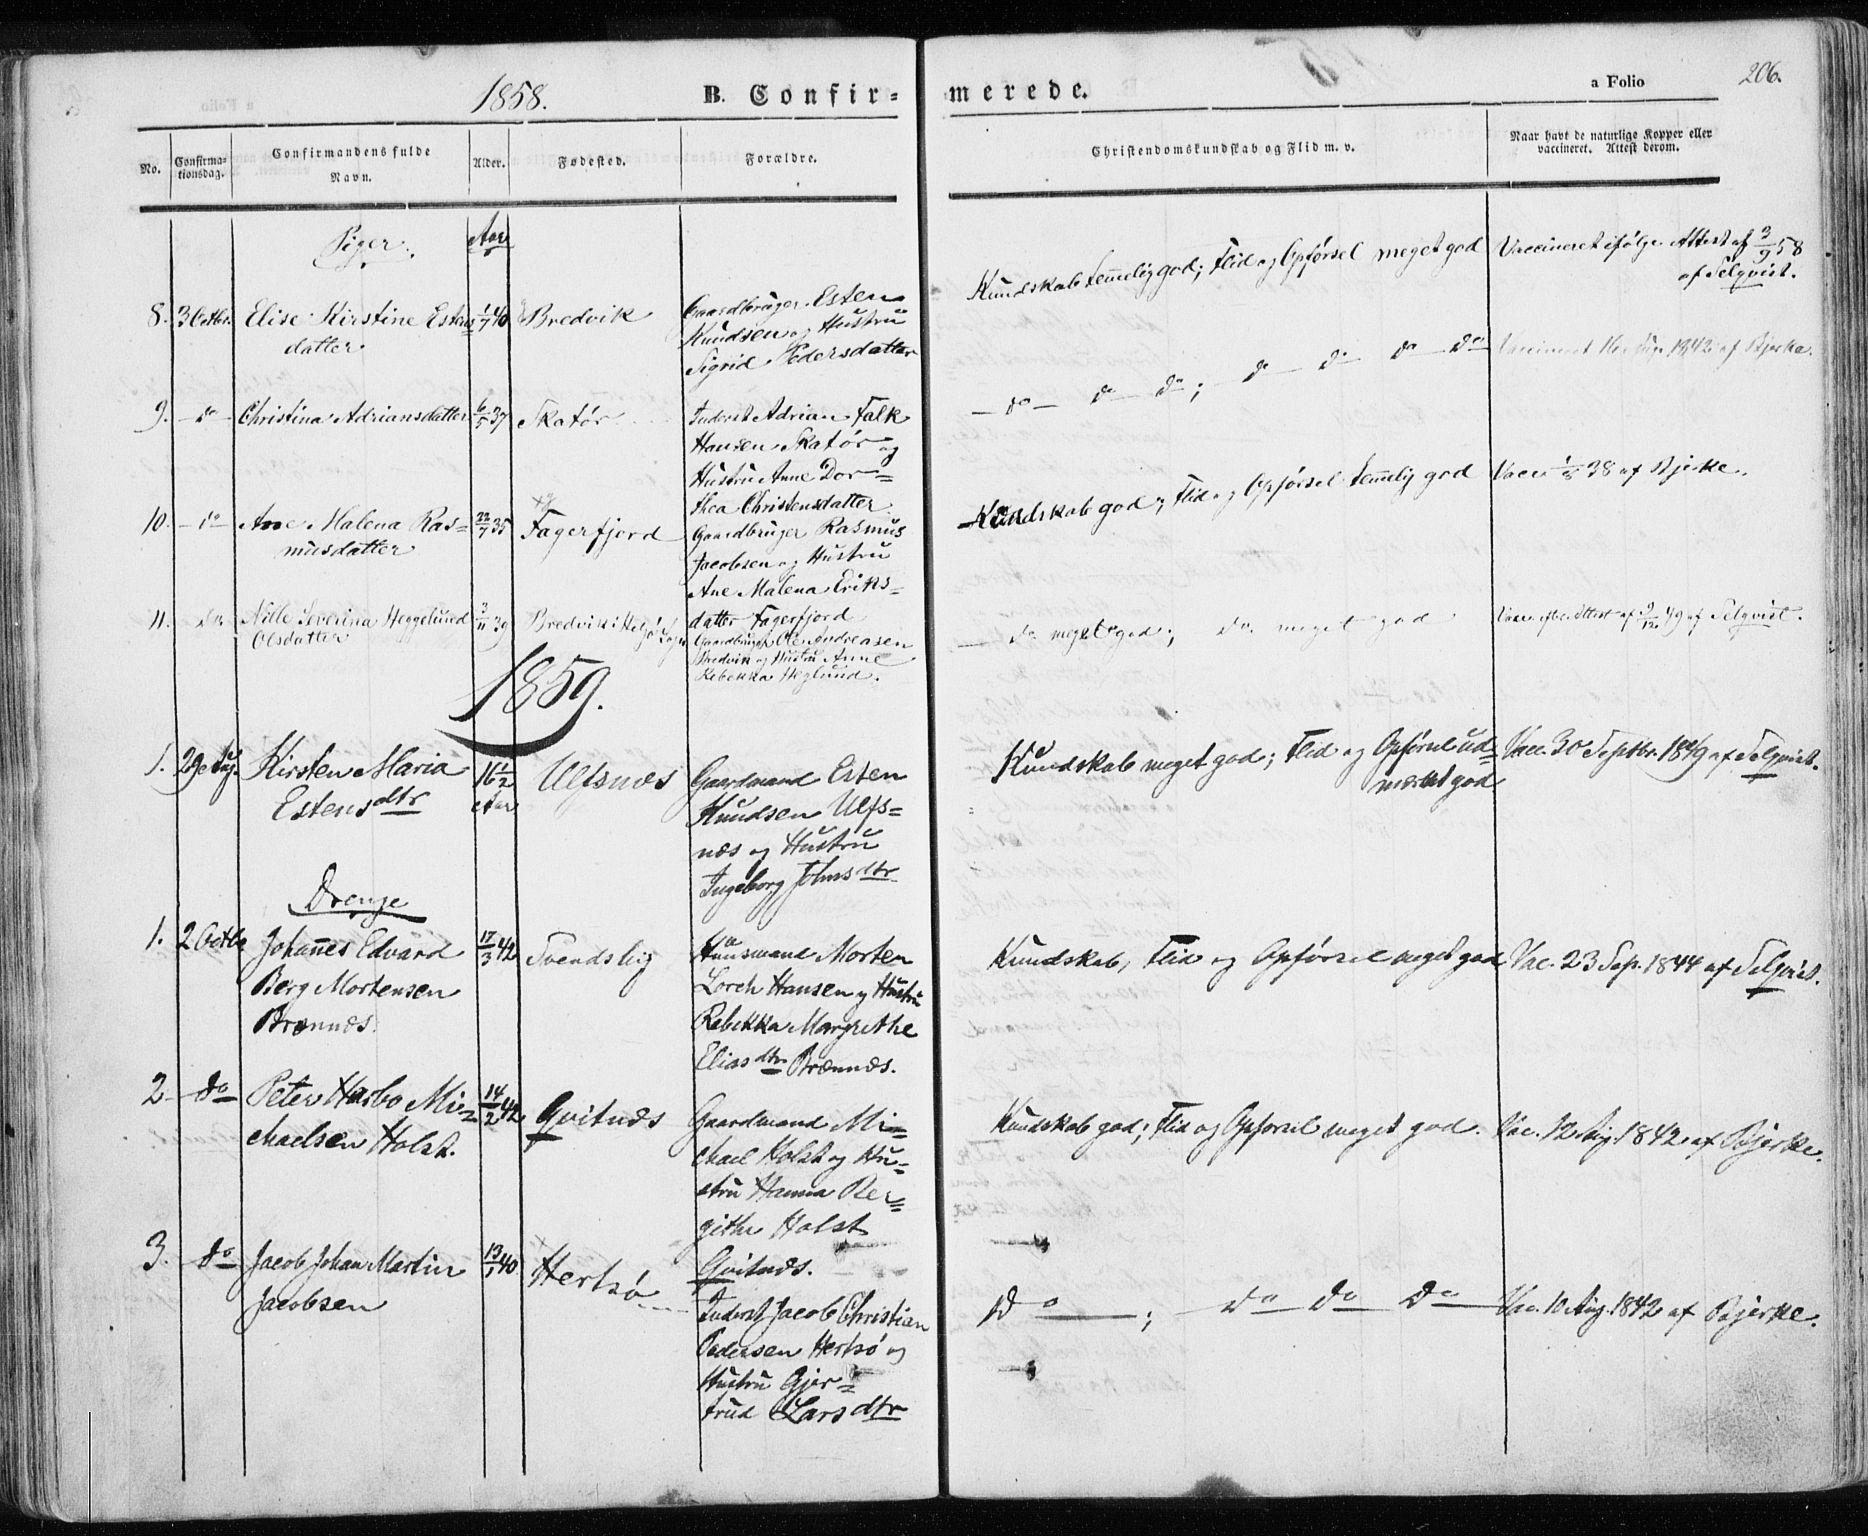 1858. B. Confirmerede. a Folio 206.
No. Confirmationsdag. Confirmandens fulde Navn. Alder. Fødested. Forældre. Christendomskundskab og Flid m. v. Naar havt de naturlige Kopper eller vaccineret. Attest derom.
Piger. Aar
8. 3 Octbr. Elise Kirstine Estens 1/7 40 Bredvik Gaardbruger Esten
datter Knudsen og Hustru
Sigrid Pedersdatter
Kundskab temmelig god; Flid og Opførsel meget god Vaccineret ifølge Attest af 3/9 58
af Selqvist.
9. do Christina Adriansdatter 6/5 37 Skatør Inderst Adrian Falk
Hansen Skatør og
Hustru Anne Dor=
thea Christensdatter
do do do; do do do do Vaccineret 1842 af Bjerke.
10. do Ane Malena Ras= 22/7 35 Fagerfjord Gaardbruger Rasmus
musdatter Jacobsen og Hustru
Ane Malena Eriks=
datter Fagerfjord
Kundskab god; Flid og Opførsel temmelig god Vacc 38 af Bjerke.
11. do Nille Severina Heggelund 3/11 39 Bredvik i
Olsdatter Gaardbruger Ole Andreasen
Bredvik og Hustru Anne
Rebekka Heglund.
do meget god; do meget god Attest af 9/12 49 af Selqvist.
1859.
1. 29 Aug. Kirsten Maria 16 1/2 Ulfsnæs Gaardmand Esten
Estensdtr Aar Knudsen Ulfs=
næs og Hustru
Ingeborg Johnsdtr
Kundskab meget god; Flid og Opførsel ud= Vac. 30 Septbr. 1849 af Selqvist.
mærket god
Drenge
1. 2 Octbr Johannes Edvard 17/3 42 Svendsby Huusmand Morten
Berg Mortensen Lorch Hansen og Hustru
Brænnæs. Rebekka Margrethe
Eliasdtr Brænnæs.
Kundskab, Flid og Opførsel meget god Vac. 23 Sep. 1844 af Selqvist.
2. do Peter Harbo Mi= 14/2 42 Qvitnæs Gaardmand Mi=
chaelsen Holst. chael Holst og Hu=
stru Hanna Ber=
githe Holst
Qvitnæs.
Kundskab god; Flid og Opførsel meget god. Vac. 12 Aug. 1842 af Bjerke.
3. do Jacob Johan Martin 13/1 40 Hertsø Inderst Jacob Christian
Jacobsen Pedersen Hertsø og
Hustru Gjer=
trud Larsdtr
do; do do do Vac. 10 Aug. 1842 af Bjerke.